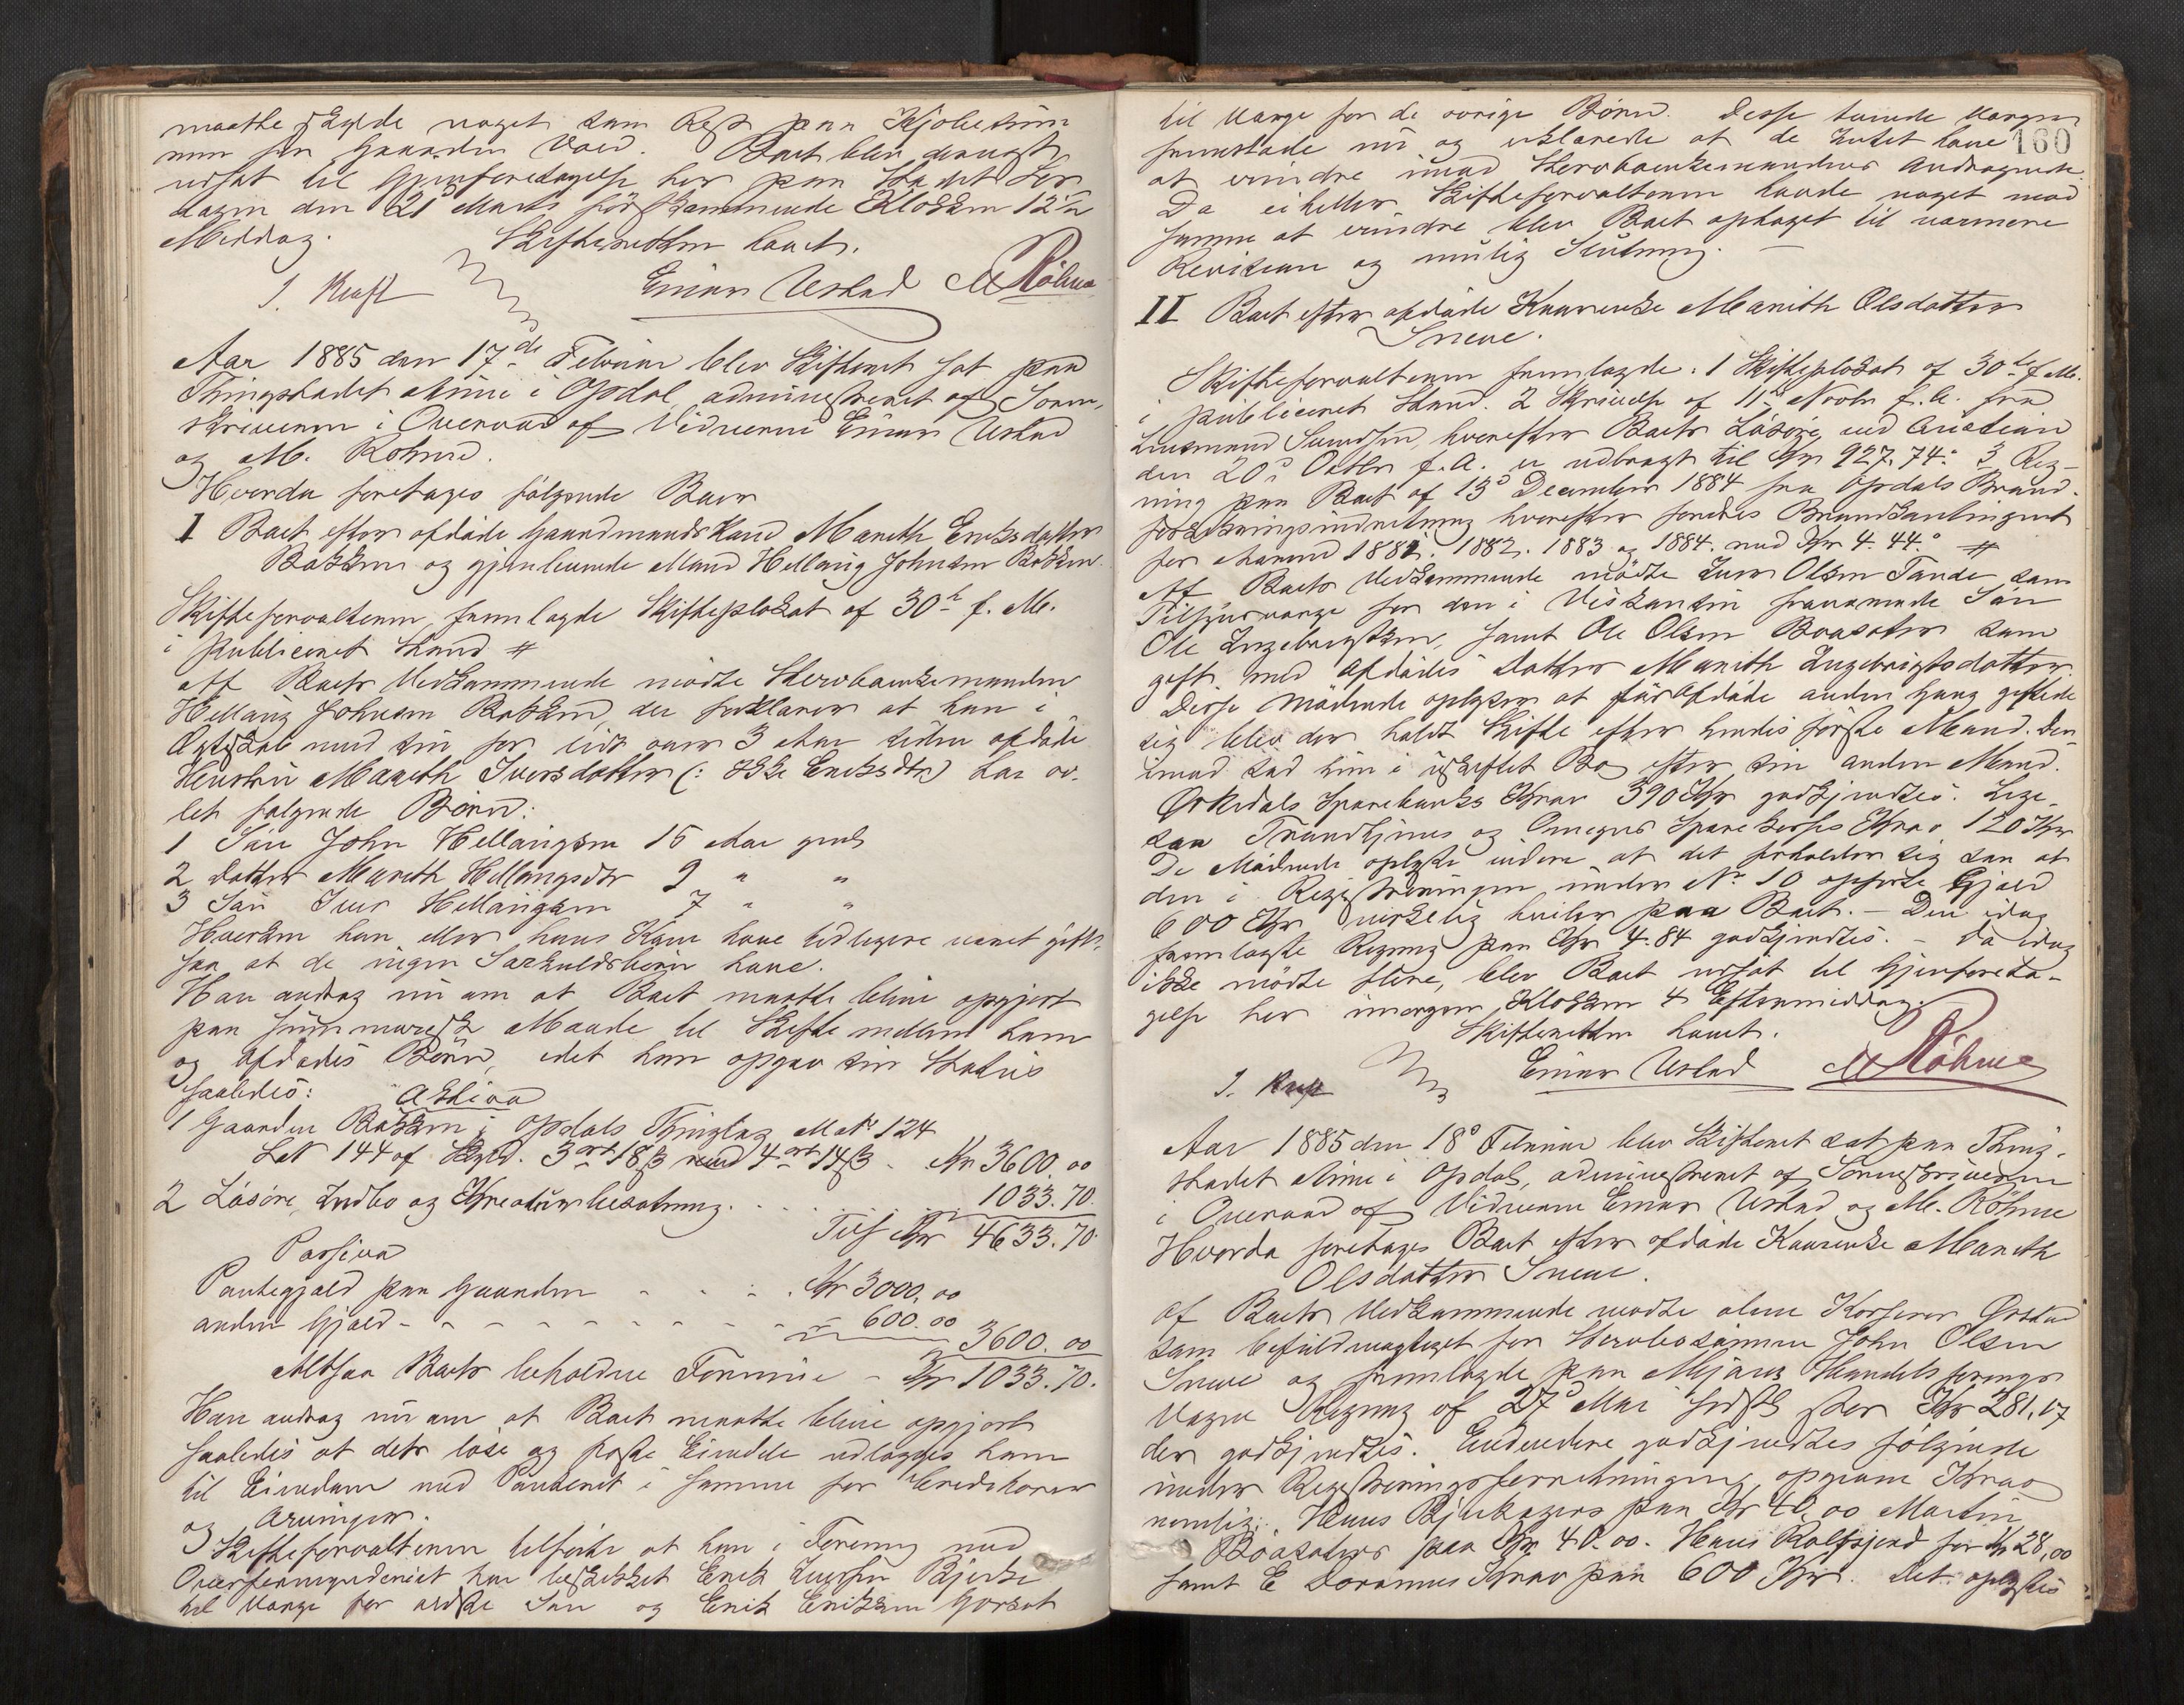 maatte skylde noget som Rest paa Kjøbesum
men for Gaarden Vold. Boet blev derngst
udsat til Gjenforetagelse her paa Stedet Lør
dagen den 21 Marts førstkommende Klokken 12
Middag. Skifteretten hævet.
J. Kraft Einar Ustad M Röhme
Aar 1885 den 17de Februar blev Skifteret sat paa
Thingstedet Aune i Opdal administreret af Soren-
skriveren i Overvær af Vidnerne Einar Ustad
og M. Røhme.
Hvorda foretages følgende Boer
I Boet efter afdøde Gaardmandskone Marith Eriksdatter
Bakken og gjenlevende Mand Hellavig Johnsen Bakken
Skifteforvalteren fremlagde Skifteplakat af 30te f. M.
i publiceret Stand #
Af Boets Vedkommende mødte Stervboenkemanden
Hellavig Johnsen Bakken, der forklarer at han i
Ægteskab med sin for lidt over 3 Aar siden afdøde
Hustru Marith Iversdatter (: ikke Eriksdtr) har av-
let følgende Børn:
1 Søn John Hellavigsen 15 Aar gml
2 Datter Marith Hellavigsdtr 9 " "
3 Søn Iver Hellavigsen 7 " "
Hverken han eller hans Kone have tidligere været gift,
saa at de ingen Særkuldsbørn have.
Han androg nu om at Boet maatte blive opgjort
paa summarisk Maade til Skifte mellem ham
og Afdødes Børn, idet han opgav sin Status
saaledes: Aktiva
1 Gaarden Bakken i Opdals Thinglag Mat No 124
Løb No 144 af Skyld. 3 ort 18 β med 4 ort 14 β . Kr 3600.00
2 Løsøre, Indbo og Kreaturbesætning . . . 1033.70
Tils Kr 4633.70
Passiva
Pantegjæld paa Gaarden - - - . Kr 3000.00
anden Gjæld - - - - - - - - - - 600.00
3600.00
Altsaa Boets beholdne Formue - Kr 1033.70.
Han androg nu om at Boet maatte blive opgjort
saaledes at dets løse og faste Eiendele udlægges ham
til Eiendom med Panteret i samme for Kreditorer
og Arvinger.
Skifteforvalteren tilførte at han i Forening med
Overformynderiet har beskikket Erik Iversen Bjerke
til Værge for ældste Søn og Erik Eriksen Gorset
160
til Værge for de øvrige Børn. Disse tvende Værger
fremstode nu og erklærede at de Intet have
at erindre imod Stervboenkemandens Andragende.
Da ei heller Skifteforvalteren havde noget mod
samme at erindre blev Boet optaget til nærmere
Revision og mulig Slutning. —
II Boet efter afdøde Kaarenke Marith Olsdatter
Sneve.
Skifteforvalteren fremlagde: 1 Skifteplakat af 30te f. M.
i publiceret Stand. 2 Skrivelse af 11te Novbr f. A. fra
Lensmand hvorefter Boets Løsøre ved Auction
den 20de Octbr f. A. er udbragt til Kr 927.74. 3 Reg-
ning paa Boet af 13de December 1884 fra Opdals Brand-
forsikringsindretning hvorefter fordres Brandkontingent
for Aarene 1881. 1882. 1883 og 1884. med Kr 4.44. #
Af Boets Vedkommende mødte Iver Olsen Tande som
Tilsynsværge for den i Viskonsin fraværende Søn
Ole Ingebrigtsen, samt Ole Olsen Boasæter som
gift med Afdødes Datter Marith Ingebrigtsdatter.
Disse Mødende oplyser at før Afdøde anden Gang giftede
sig blev der holdt Skifte efter hendes første Mand. Der-
imod sad hun i uskiftet Bo efter sin anden Mand.
Orkedals Sparebanks Krav 390 Kr godkjendtes. Lige-
saa Trondhjems og Omegns Sparekasses Krav 120 Kr
De Mødende oplyste videre at det forholder sig saa at
den i Registreringen under No 10 opførte Gjæld
600 Kr virkelig hviler paa Boet. — Den idag
fremlagte Regning paa Kr 4.84 godkjendtes. — Da idag
ikke mødte flere, blev Boet udsat til Gjenforeta-
gelse her imorgen Klokken 4 Eftermiddag.
Skifteretten hævet.
J. Kraft Einar Ustad M Röhme
Aar 1885 den 18de Februar blev Skifteret sat paa Thing-
stedet Aune i Opdal, administreret af Sorenskriveren
i Overvær af Vidnerne Einar Ustad og M. Röhme
Hvorda foretages Boet efter afdøde Kaarenke Marith
Olsdatter Sneve.
Af Boets Vedkommende mødte alene Kasserer Ørstad
som befuldmægtiget for Stervbosønnen John Olsen
Sneve og fremlagde paa Handelsforenings
Vegne Regning af 27de Mai stor Kr 281.17
der godkjendtes. Endvidere godkjendtes følgende
under Registreringsforretningen opgivne Krav
nemlig: Hans paa Kr 40,00 Martin
Boasæters paa Kr 40.00. Hans for Kr 28,00
samt E Krav paa 600 Kr. Det oplystes